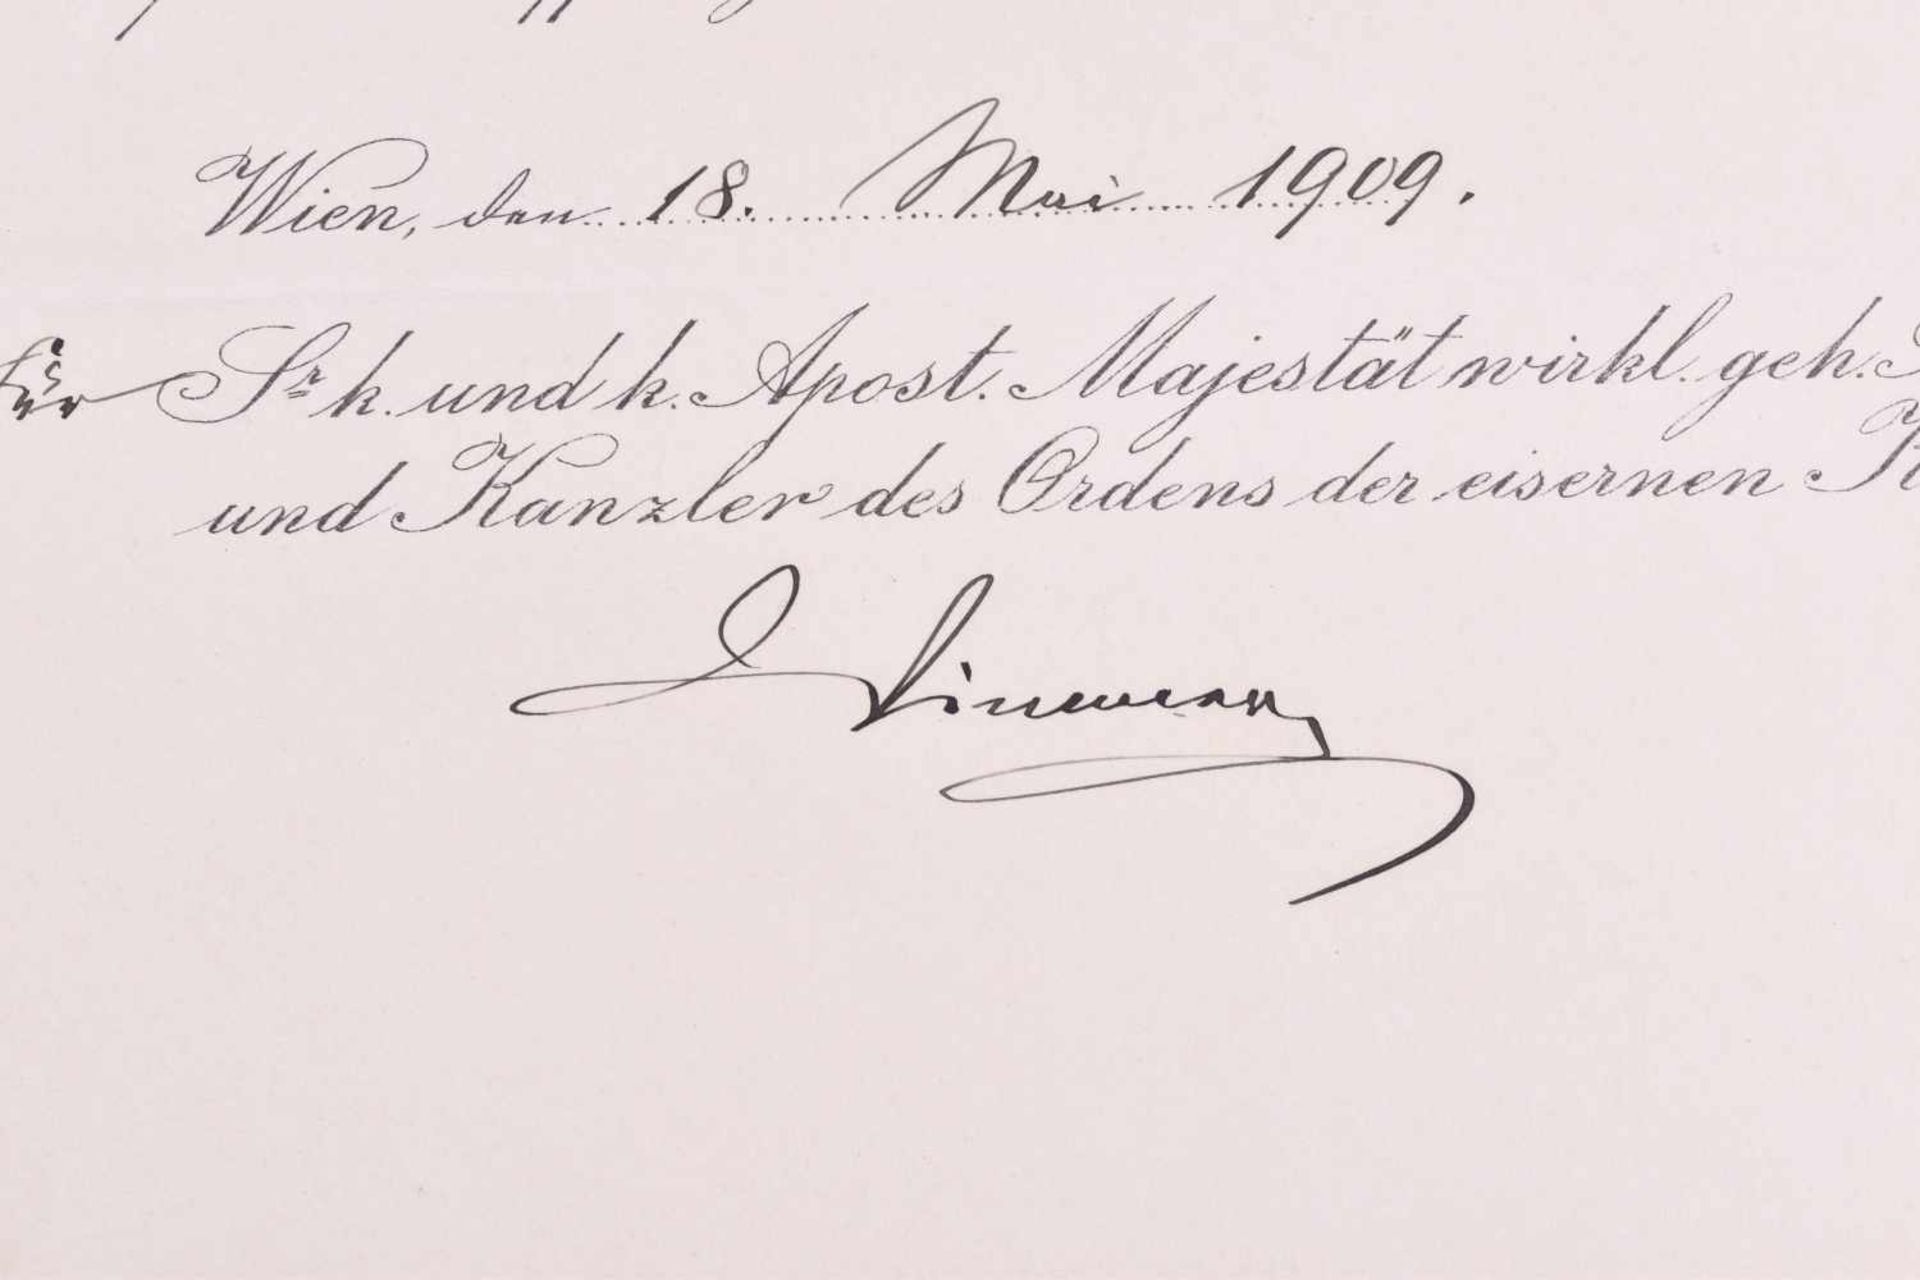 Wien, den 18. Mai 1909.
für Sr k. und k. Apost. Majestät wirkl. geh.
und Kanzler des Ordens der eisernen